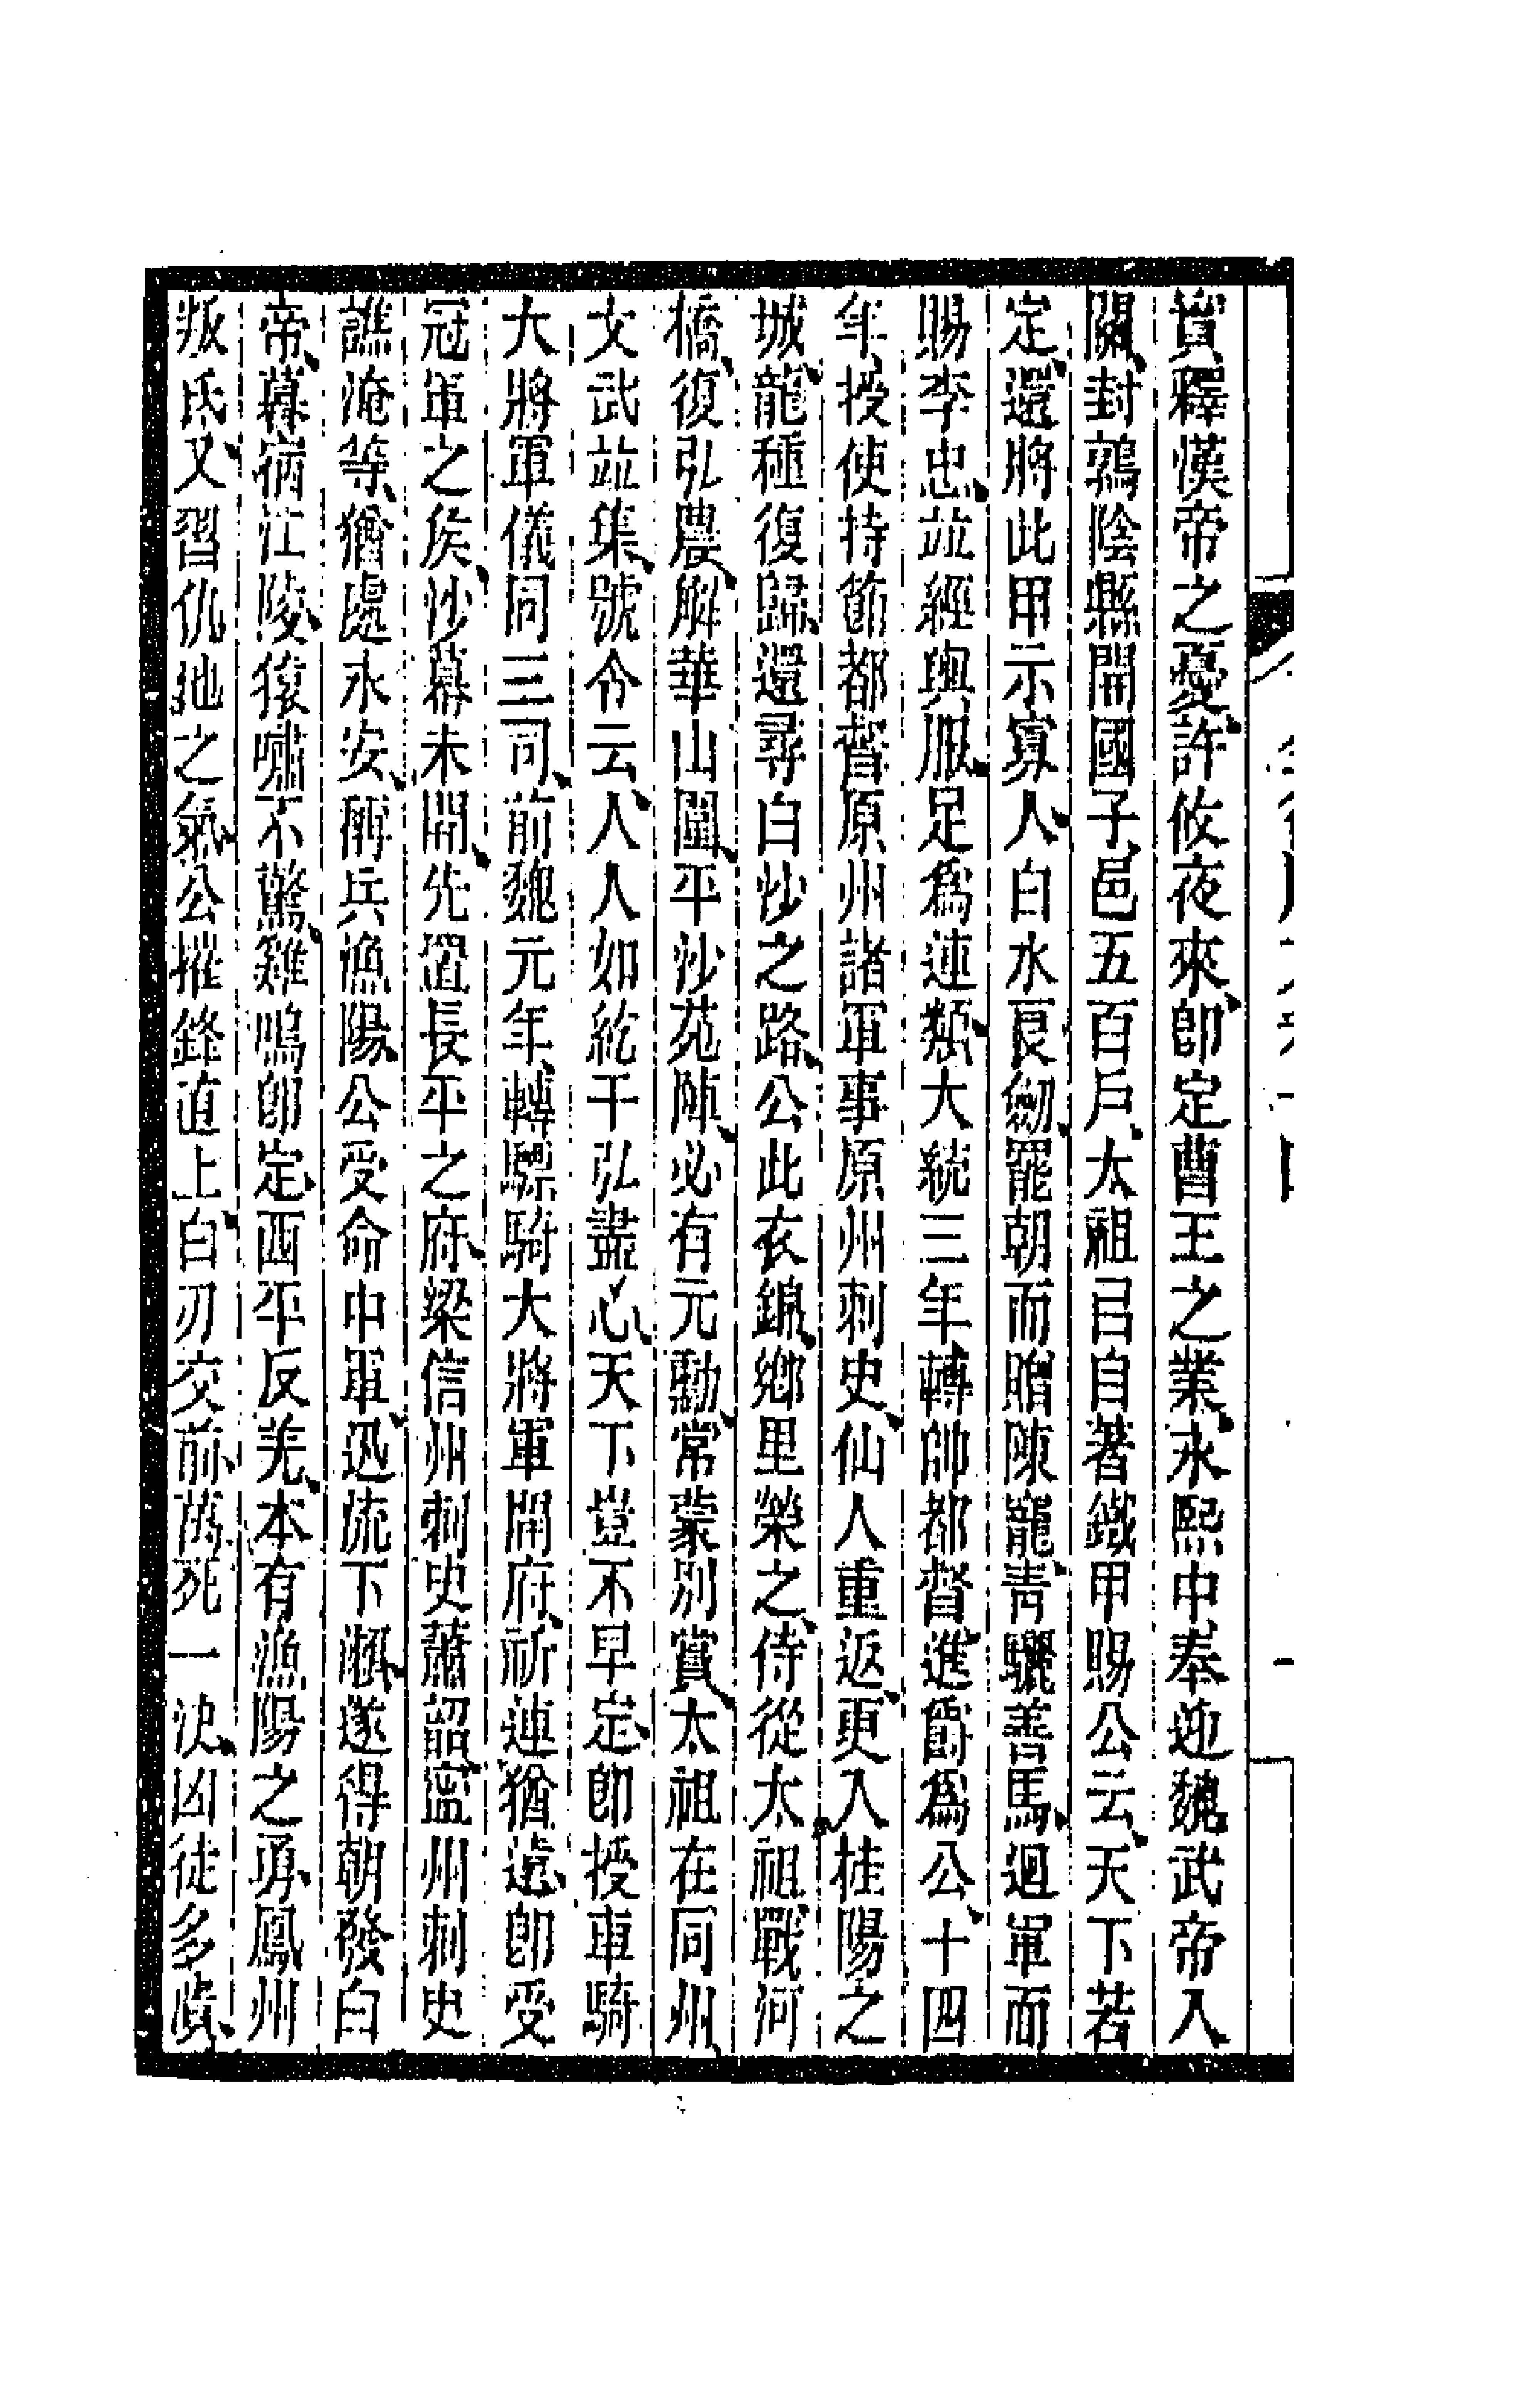 實釋漢帝之憂許攸夜來卽定曹王之業永熙中奉迎魏武帝入
關封鶉陰縣開國子邑五百戶太祖召自著鐵甲賜公云天下若
定還將此甲示寡人白水良劒罷朝而贈陳寵靑驪善馬迴軍而
賜李忠竝經輿服足爲連類大統三年轉帥都督進爵爲公十四
年授使持節都督原州諸軍事原州刺史仙人重返更入桂陽之
城龍種復歸還尋白沙之路公此衣錦鄉里榮之侍從太祖戰河
橋復弘農解華山圍平沙苑陣必有元勳常蒙別賞太祖在同州
文武竝集號令云人人如紇干弘盡心天下豈不早定卽授車騎
大將軍儀同三司前魏元年轉驃騎大將軍開府祈連猶遠卽受
冠軍之侯沙幕未開先置長平之府梁信州刺史蕭韶寧州刺史
譙淹等猶處永安稱兵漁陽公受命中軍迅流下瀨遂得朝發白
帝暮宿江陵猿嘯不驚雞鳴卽定西平反羌本有漁陽之勇鳳州
叛氐又習仇池之氣公摧鋒直上白刃交前萬死一決凶徒多潰